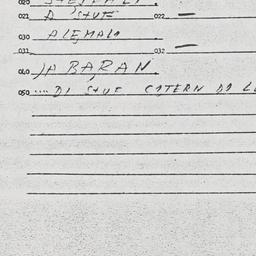 020
021 D STUF 022 —
030 ALEMALA
031 032 —
040 JA BARAN.
050 .... DI STUF COTERN DA